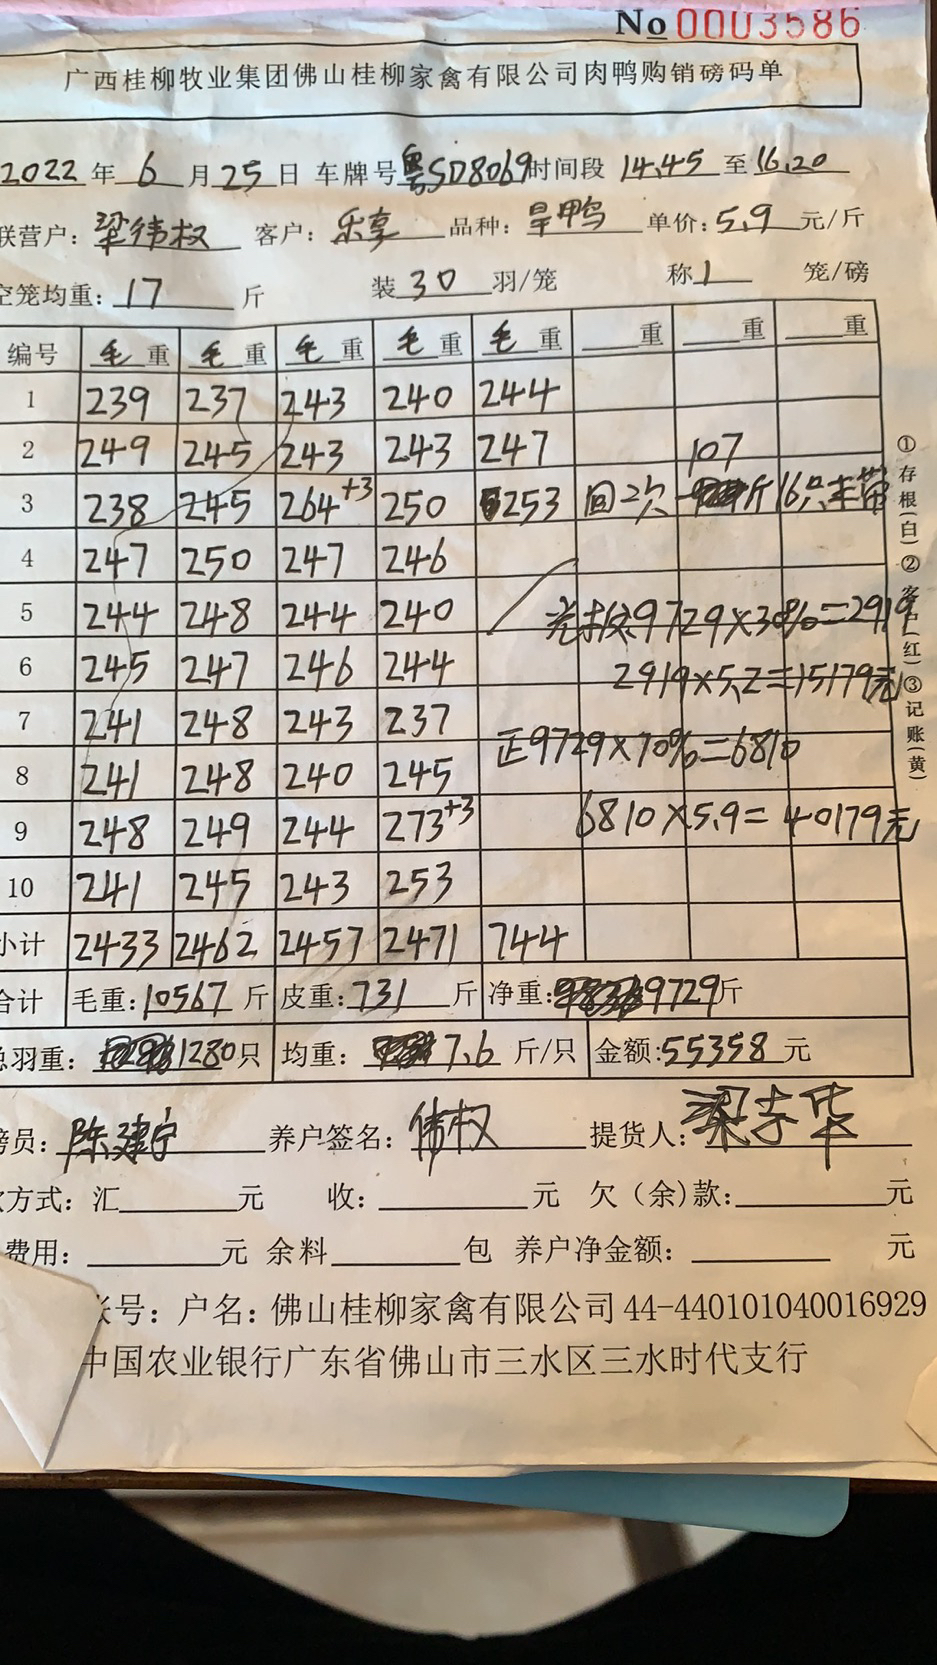 No 0003586
广西桂柳牧业集团佛山桂柳家禽有限公司肉鸭购销磅码单
2022 年 6 月 25 日 车牌号 粤SD8069 时间段 14.45 至 16.20
联营户: 梁伟权 客户: 乐享 品种: 旱鸭 单价: 5.9 元/斤
空笼均重: 17 斤 装 30 羽/笼 称 1 笼/磅
编号 毛 重 毛 重 毛 重 毛 重 毛 重 重 重 重
1 239 237 243 240 244
2 249 245 243 243 247 107
3 238 245 264+3 250 253 回二次 斤16只
4 247 250 247 246
5 244 248 244 240 9729×30%=2919
6 245 247 246 244 2919×5.2=15179元
7 241 248 243 237
8 241 248 240 245 正9729×70%=6810
9 248 249 244 273+3 6810×5.9=40179元
10 241 245 243 253
小计 2433 2462 2457 2471 744
合计 毛重: 10567 斤 皮重: 731 斤 净重: 9729 斤
总羽重: 1280 只 均重: 7.6 斤/只 金额: 55358 元
磅员: 陈建宁 养户签名: 伟权 提货人: 梁志华
方式: 汇 元 收: 元 欠(余)款: 元
费用: 元 余料 包 养户净金额: 元
账号: 户名: 佛山桂柳家禽有限公司 44-440101040016929
中国农业银行广东省佛山市三水区三水时代支行
①存根(白)②客户(红)③记账(黄)